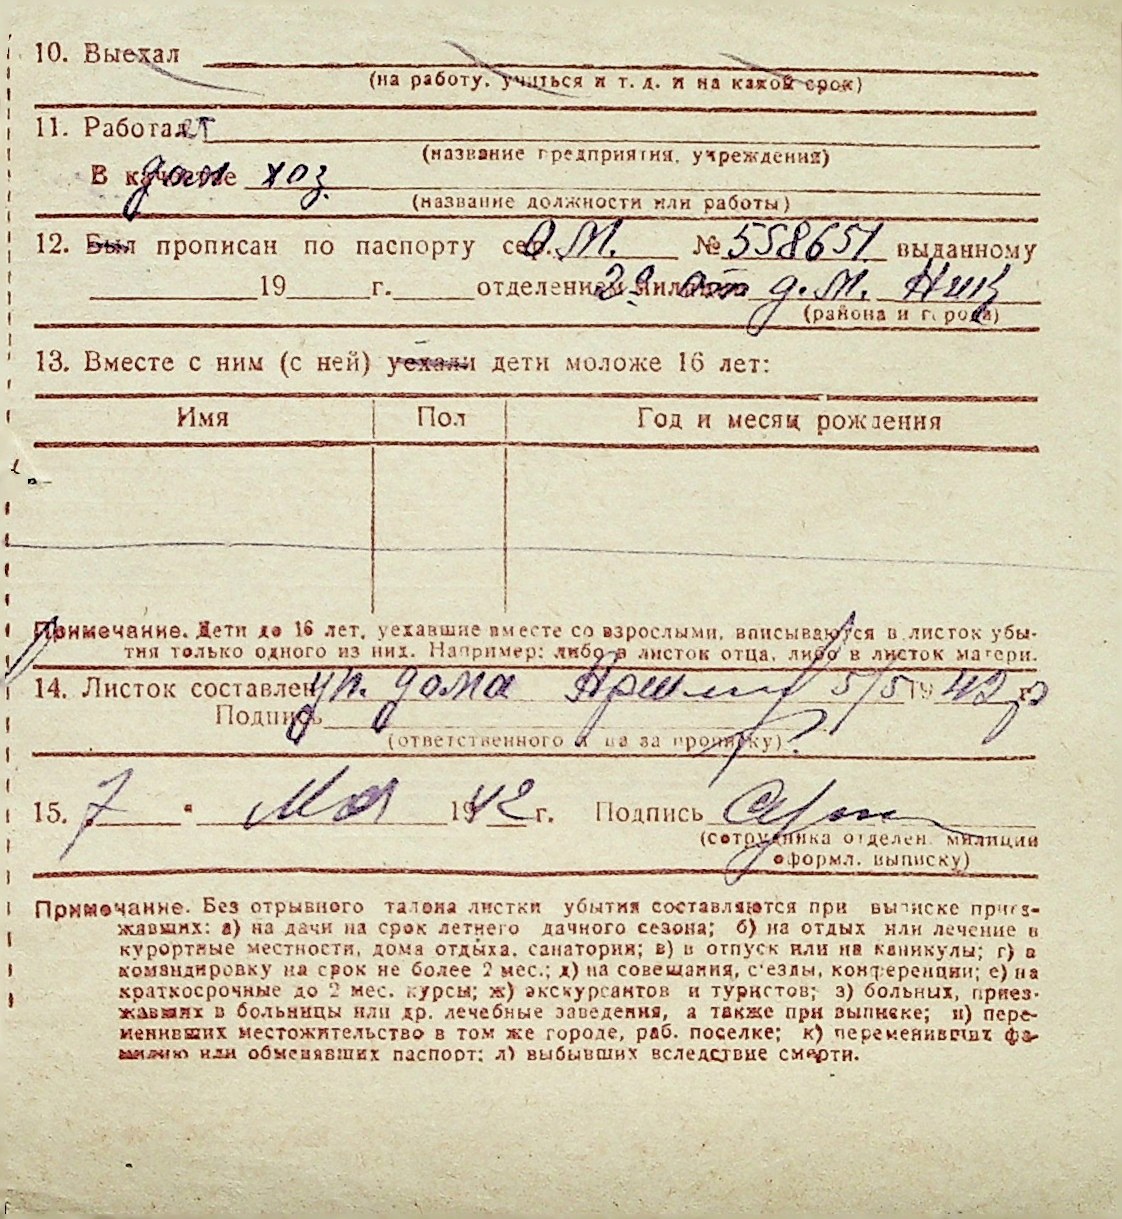 10. Выехал
(на работу, учиться и т. д. и на какой срок)
11. Работает
(название предприятия, учреждения)
В качестве дом хоз.
(название должности или работы)
12. Был прописан по паспорту сер. О.М. № 558651 выданному
19 г. отделением милиции 29 отд. г. М.
(района и города)
13. Вместе с ним (с ней) уехали дети моложе 16 лет:
Имя Пол Год и месяц рождения
Примечание. Дети до 16 лет, уехавшие вместе со взрослыми, вписываются в листок убы-
тия только одного из них. Например: либо в листок отца, либо в листок матери.
14. Листок составлен уп. дома 5/5 1942 г.
Подпись
(ответственного лица за прописку)
15. 7 " Мая 1942 г. Подпись
(сотрудника отделен. милиции
оформл. выписку)
Примечание. Без отрывного талона листки убытия составляются при выписке приез-
жавших: а) на дачи на срок летнего дачного сезона; б) на отдых или лечение в
курортные местности, дома отдыха, санатории; в) в отпуск или на каникулы; г) в
командировку на срок не более 2 мес.; д) на совещания, с'езды, конференции; е) на
краткосрочные до 2 мес. курсы; ж) экскурсантов и туристов; з) больных, приез-
жавших в больницы или др. лечебные заведения, а также при выписке; и) пере-
менивших местожительство в том же городе, раб. поселке; к) переменивших фа-
милию или обменявших паспорт; л) выбывших вследствие смерти.